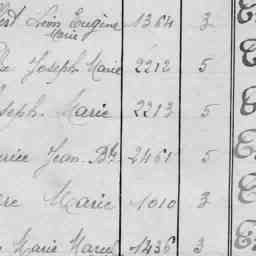 Léon Eugène 1364 3
Marie
Joseph Marie 2212 5
Joseph Marie 2213 5
Jean Bte 2461 5
Marie 1010 3
Marie Marcel 1436 3